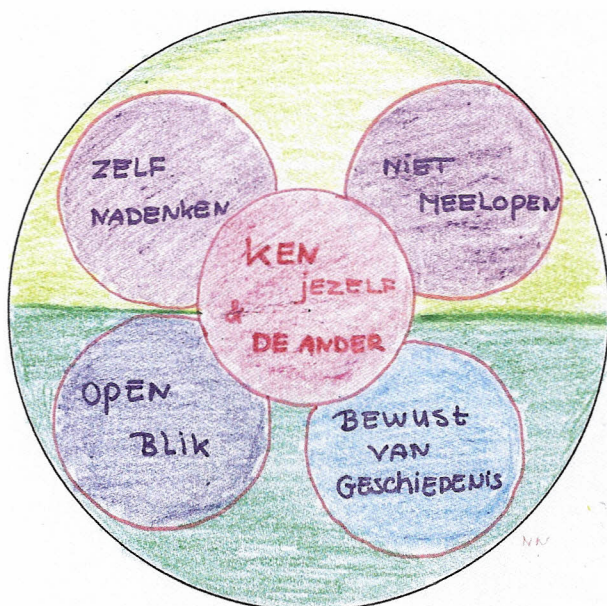 ZELF
NADENKEN
NIET
MEELOPEN
KEN
JEZELF
&
DE ANDER
OPEN
BLIK
BEWUST
VAN
GESCHIEDENIS
NN